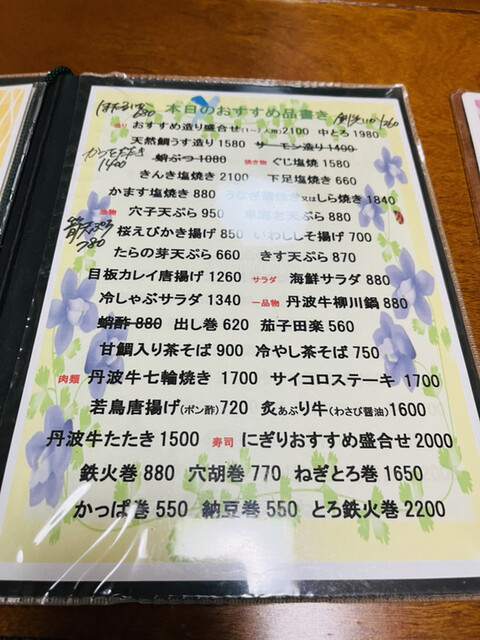 ほたるいか 680
本日のおすすめ品書き
造り おすすめ造り盛合せ(1~2人用)2100 中とろ1980
天然鯛うす造り 1580 サーモン造り 1490
かつおたたき 1400
蛸ぶつ 1080 焼き物 ぐじ塩焼 1580
きんき塩焼 2100 下足塩焼き 660
かます塩焼き 880 うなぎ蒲焼き又はしら焼き 1840
揚物 穴子天ぷら 950 車海老天ぷら 880
筍天ぷら 780
桜えびかき揚げ 850 いわししそ揚げ 700
たらの芽天ぷら 660 きす天ぷら 770
目板カレイ唐揚げ 1260 サラダ 海鮮サラダ 880
冷しゃぶサラダ 1340 一品物 丹波牛柳川鍋 880
蛸酢 880 出し巻 620 茄子田楽 560
甘鯛入り茶そば 900 冷やし茶そば 750
肉類 丹波牛七輪焼き 1700 サイコロステーキ 1700
若鳥唐揚げ(ポン酢)720 炙あぶり牛(わさび醤油)1600
丹波牛たたき 1500 寿司 にぎりおすすめ盛合せ 2000
鉄火巻 880 穴胡巻 770 ねぎとろ巻 1650
かっぱ巻 550 納豆巻 550 とろ鉄火巻 2200